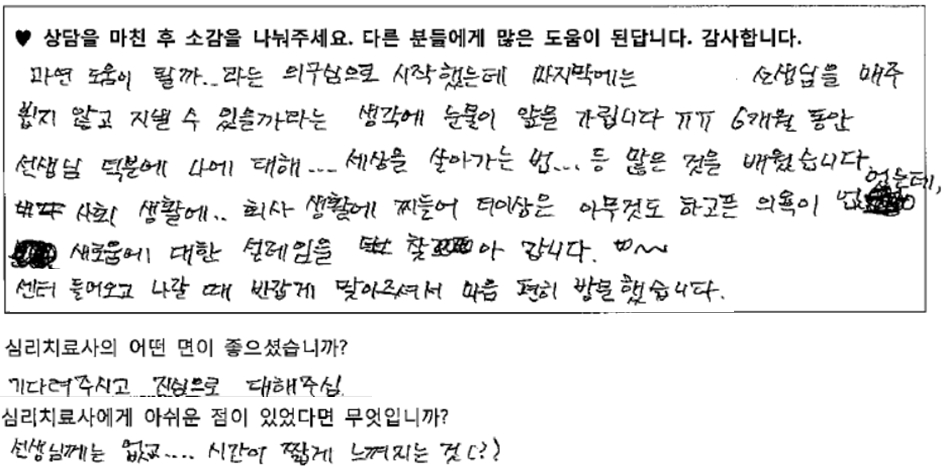 ♥ 상담을 마친 후 소감을 나눠주세요. 다른 분들에게 많은 도움이 된답니다. 감사합니다.
과연 도움이 될까..라는 의구심으로 시작했는데 마지막에는 선생님을 매주
뵙지 않고 지낼 수 있을까라는 생각에 눈물이 앞을 가립니다 ㅠㅠ 6개월 동안
선생님 덕분에 나에 대해.... 세상을 살아가는 법... 등 많은 것을 배웠습니다.
사회 생활에.. 회사 생활에 찌들어 더이상은 아무것도 하고픈 의욕이 없었는데,
새로움에 대한 설레임을 찾아 갑니다. ^^~
센터 들어오고 나갈 때 반갑게 맞아주셔서 마음 편히 방문했습니다.
심리치료사의 어떤 면이 좋으셨습니까?
기다려주시고 진심으로 대해주심
심리치료사에게 아쉬운 점이 있었다면 무엇입니까?
선생님께는 없고.... 시간이 짧게 느껴지는 것(?)